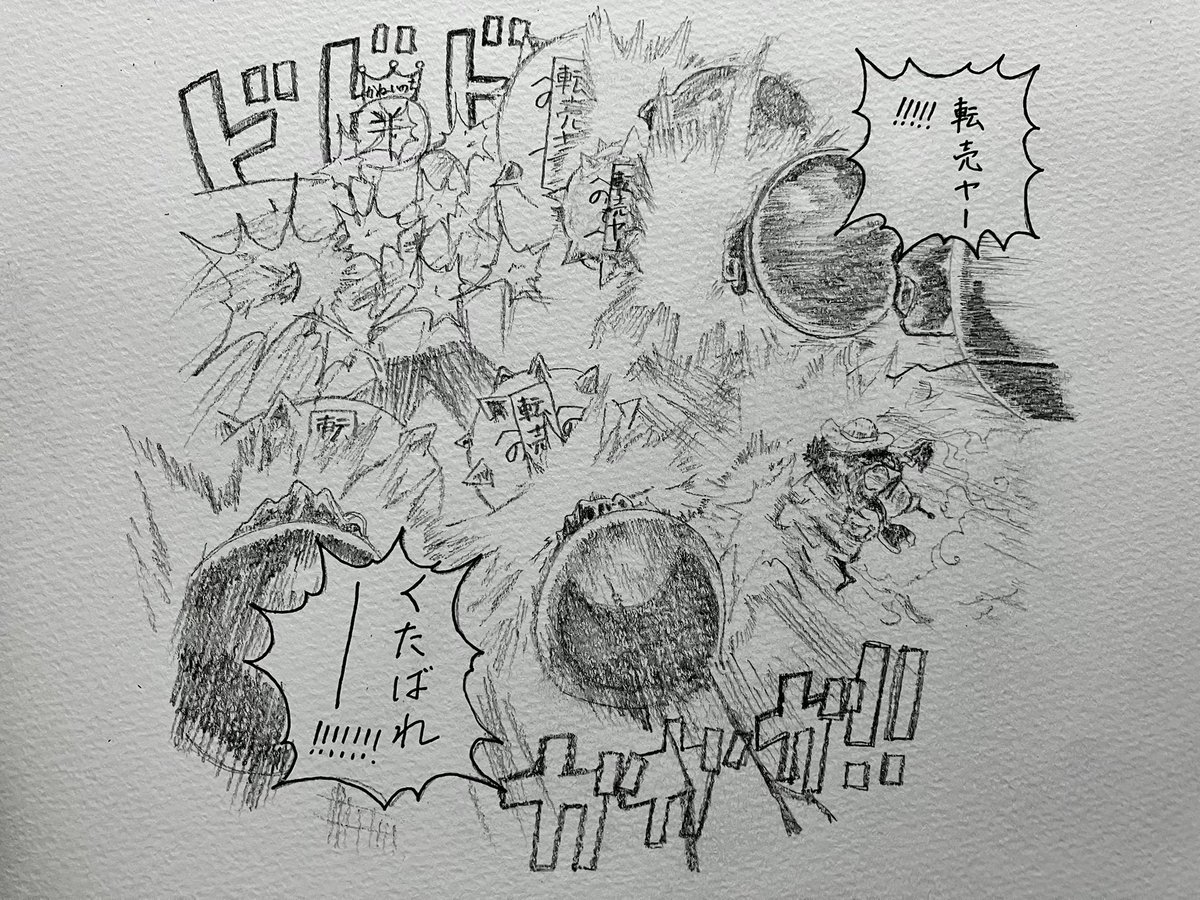 転売ヤー
!!!!!
ドドド
かねいのち
転売ヤ
の
転売ヤー
の
転売
の
転
くたばれ
ー!!!!!!!
ガガガ!!